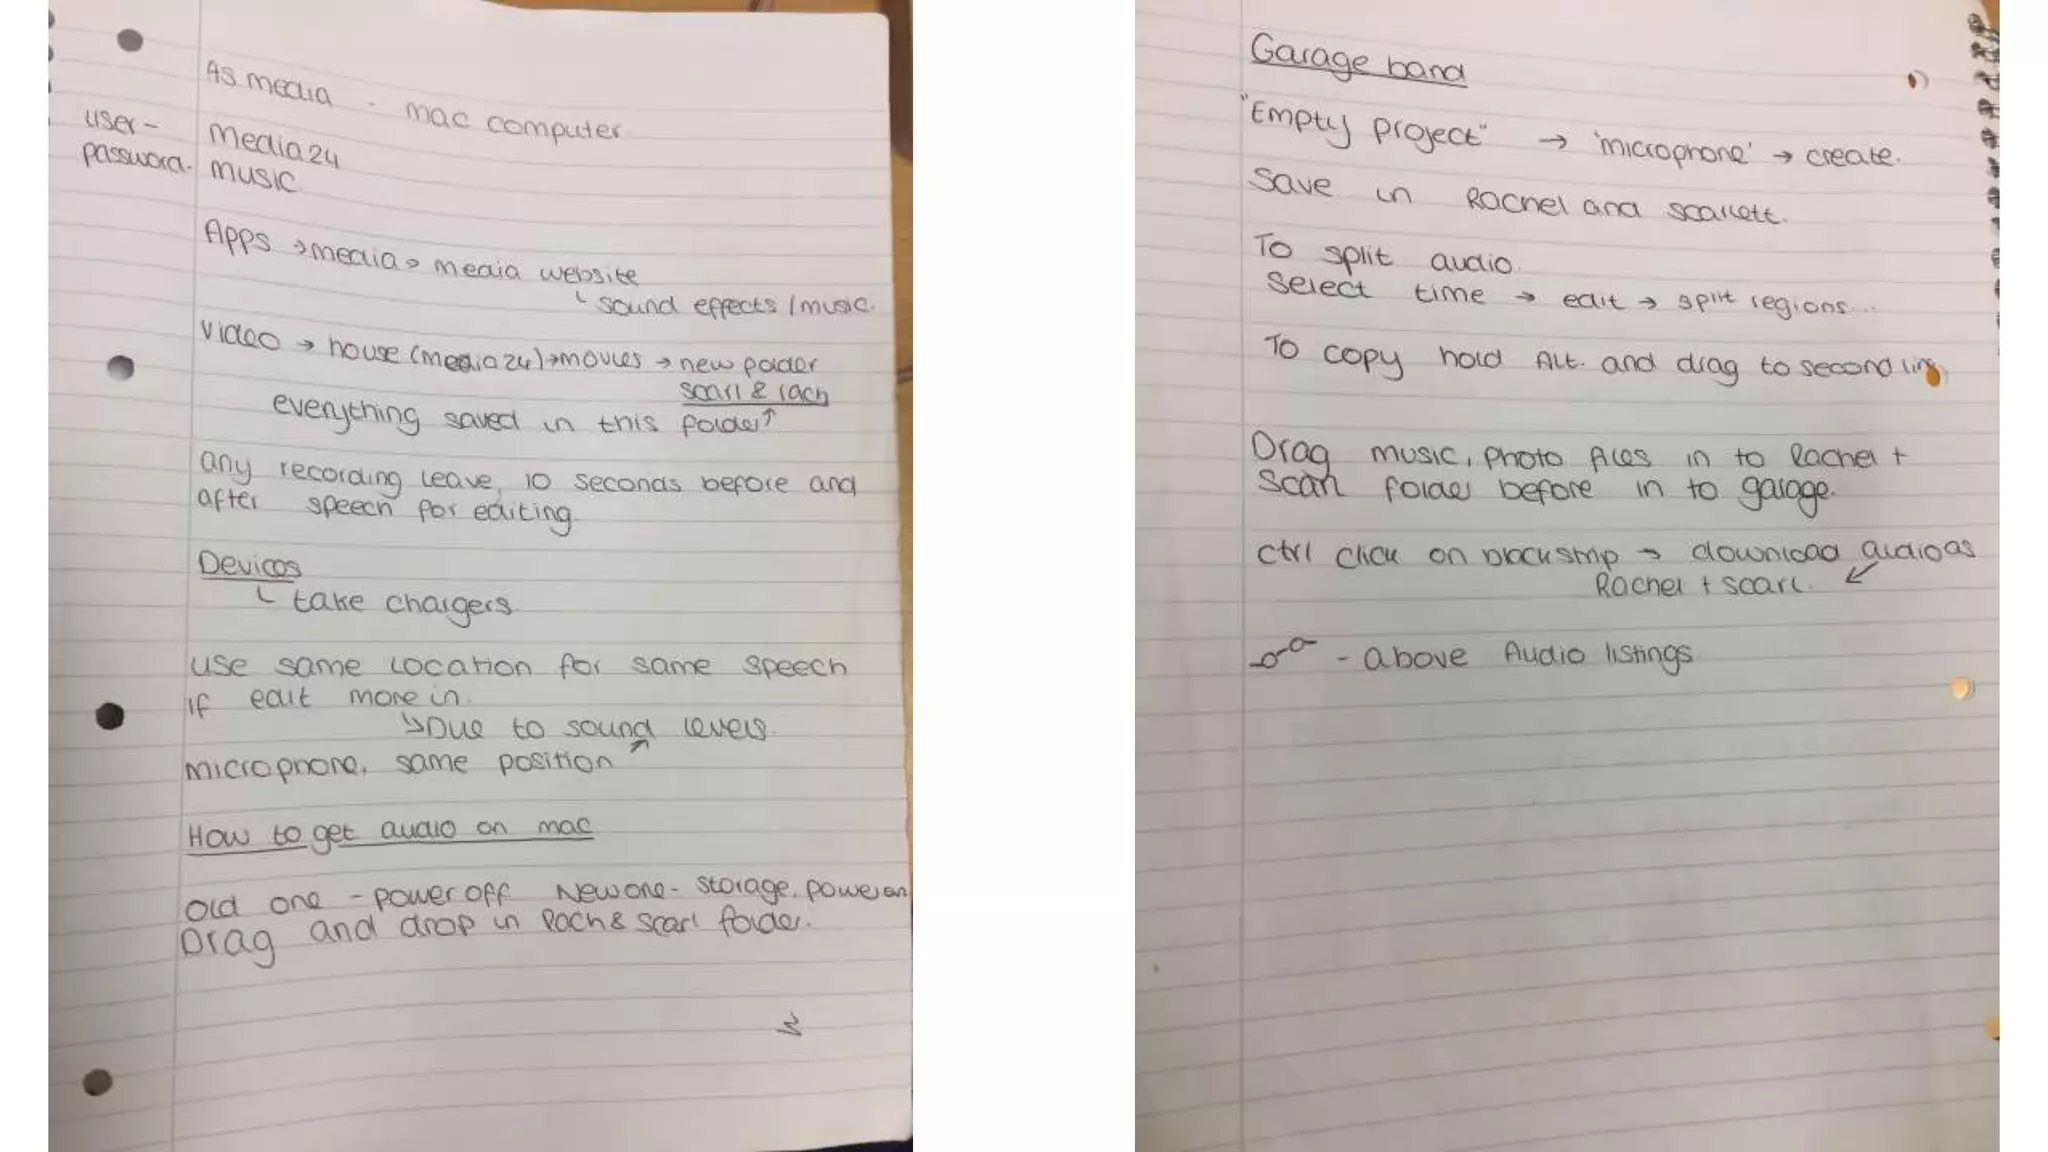 As media - mac computer
user - media24
password - music
Apps → media → media website
↳ sound effects / music.
Video → house (media24) → movies → new folder
scarl & rach
everything saved in this folder ↑
any recording leave 10 seconds before and
after speech for editing
Devices
↳ take chargers
use same location for same speech
if edit more in.
↳ Due to sound levels
microphone, same position ↗
How to get audio on mac
Old one - power off New one - storage, power on
Drag and drop in Rach & Scarl folder.
Garage band
"Empty project" → 'microphone' → create.
Save in Rachel and scarlett.
To split audio
Select time → edit → split regions...
To copy hold Alt. and drag to second line
Drag music, photo files in to Rachel +
Scarl folder before in to garage.
Ctrl click on black strip → download audio as
Rachel + scarl. ↙
- above Audio listings